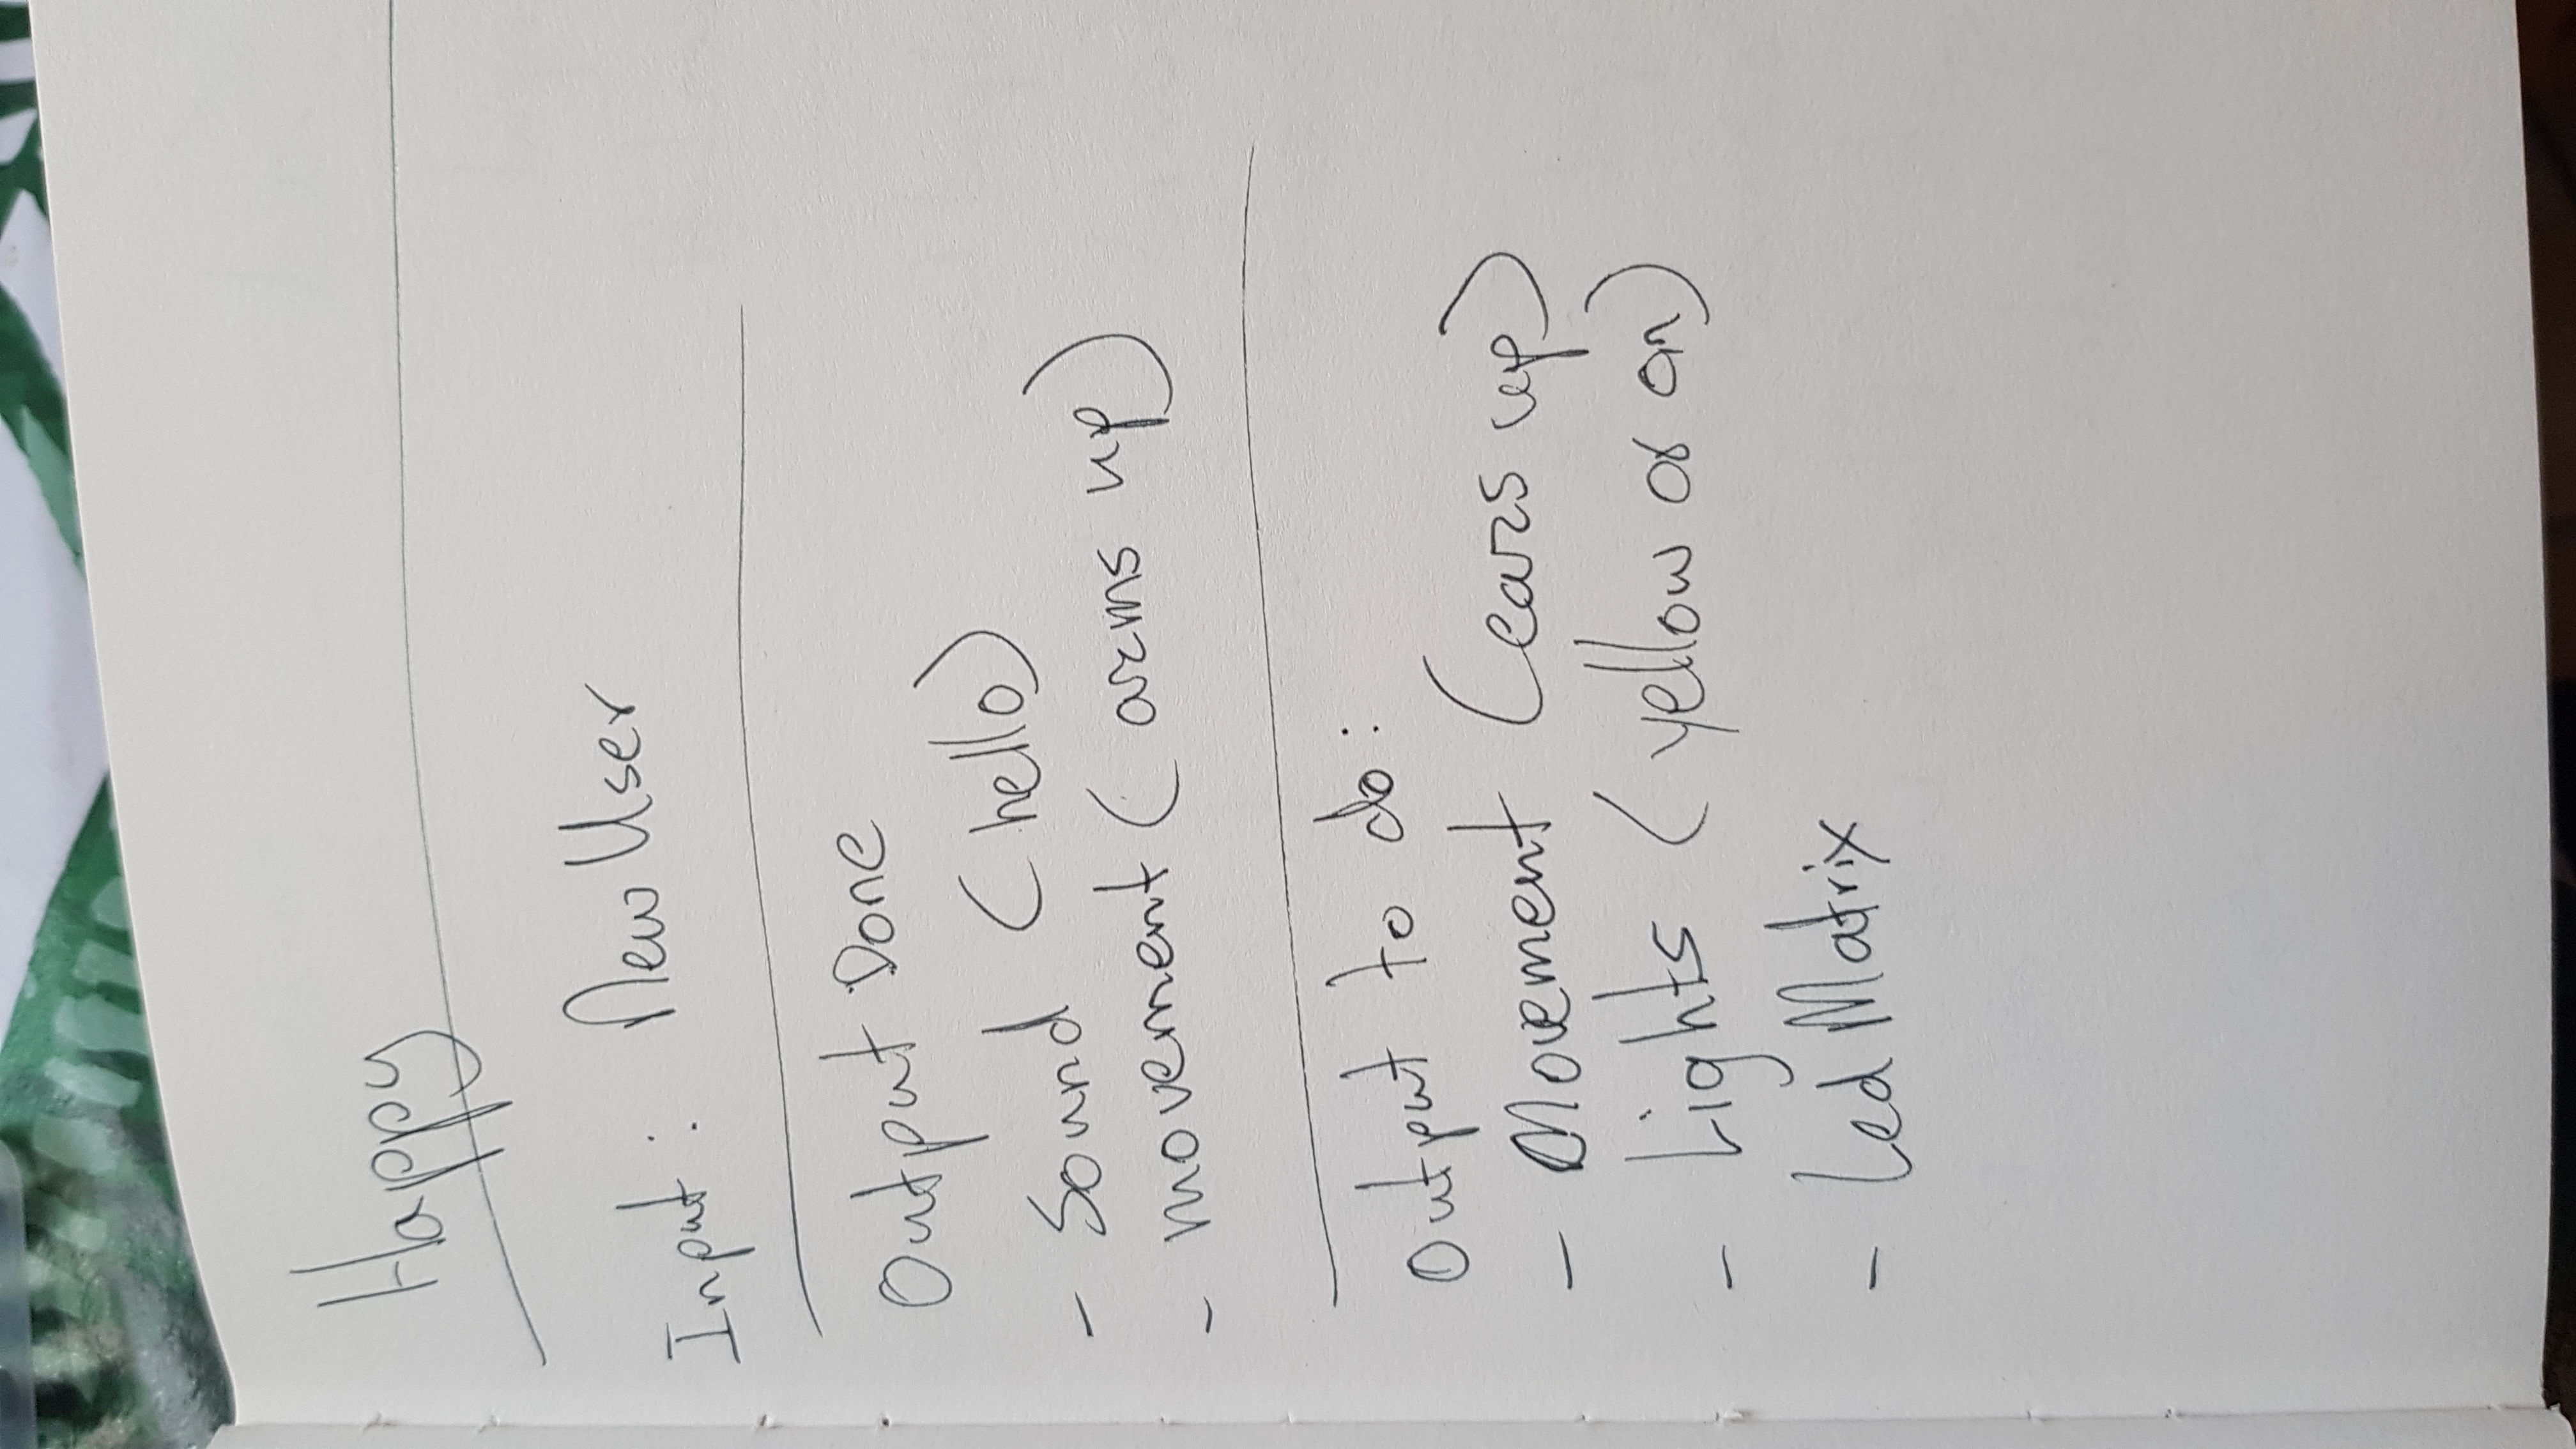 Happy
Input: New User
Output Done
- Sound (hello)
- movement (arms up)
Output to do:
- Movement (ears up)
- Lights (yellow or on)
- Led Matrix